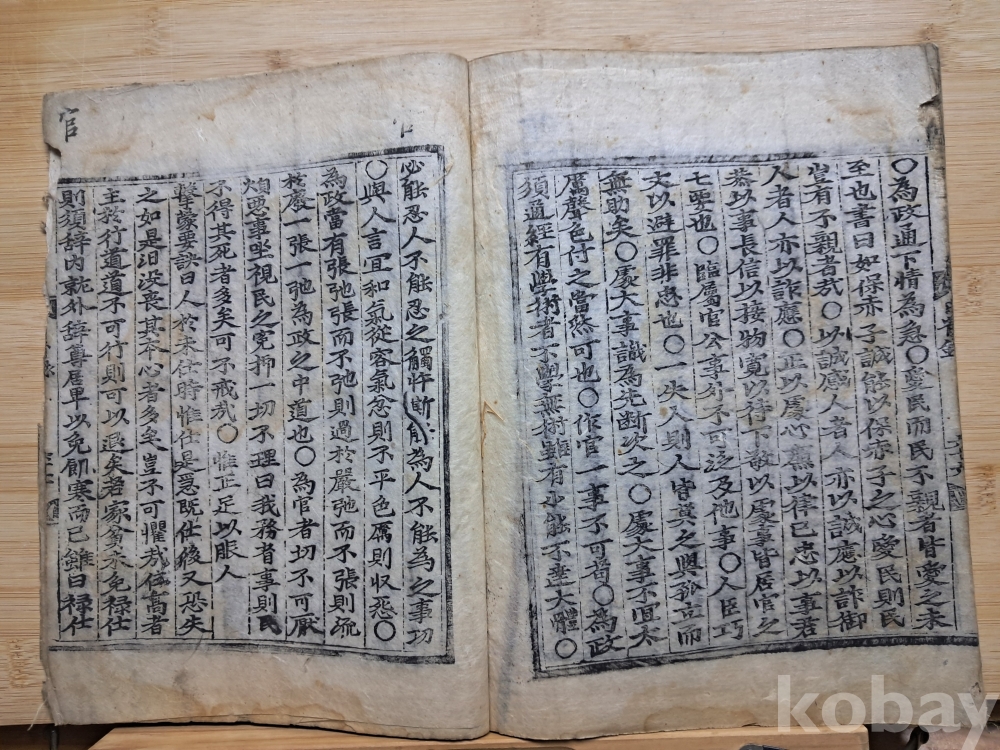 〇為政通下情為急〇愛民而民不親者皆愛之未
至也書曰如保赤子誠能以保赤子之心愛民則民
豈有不親者哉〇以誠感人者人亦以誠應以詐御
人者人亦以詐應〇正以處心廉以律己忠以事君
恭以事長信以接物寬以待下敬以處事皆居官之
七要也〇臨屬官公事外不可泛及他事〇人臣巧
文以避罪非忠也〇一失人則人皆莫之與孤立而
無助矣〇處大事識為先斷次之〇處大事不宜大
厲聲色付之當然可也〇作官一事不可苟〇為政
須通經有學術者不學無術雖有才能不達大體〇
官
必能忍人不能忍之觸忤斯能為人不能為之事功
〇與人言宜和氣從容氣忿則不平色厲則収怨〇
為政當有張弛張而不弛則過於嚴弛而不張則流
於廢一張一弛為政之中道也〇為官者切不可厭
煩惡事坐視民之寃抑一切不理曰我務省事則民
不得其死者多矣可不戒哉〇惟正足以服人
擊蒙要訣曰人於未仕時惟仕是急既仕後又恐失
之如是汩没喪其本心者多矣豈不可懼哉位高者
主於行道道不可行則可以退矣若家貧未免禄仕
則須辭内就外辭尊居卑以免飢寒而已雖曰禄仕
官
kobay